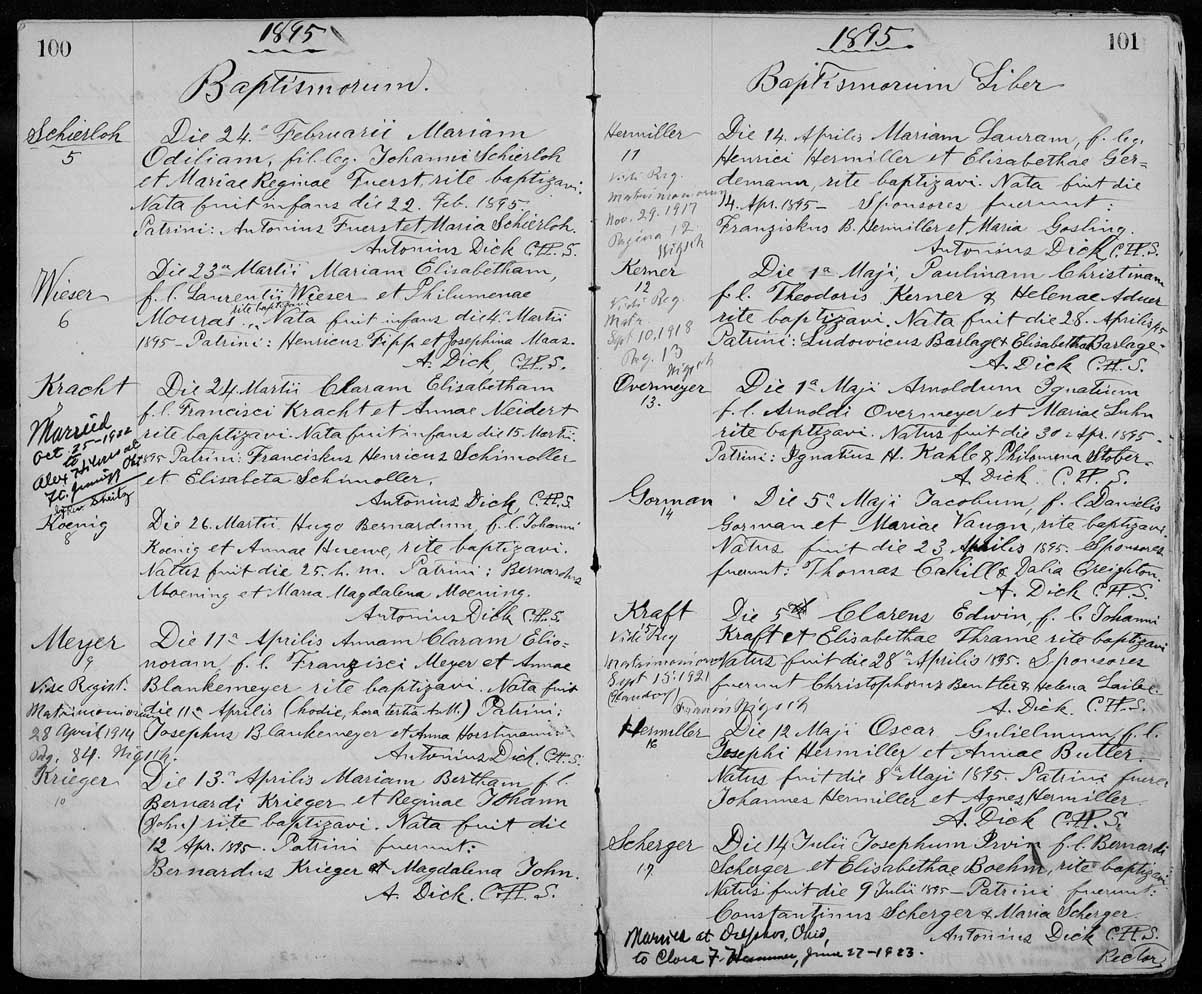 100
1895
Baptismorum.
Schierloh
5
Die 24.a Februarii Mariam
Odiliam, fil. leg. Johanni Schierloh
et Mariae Reginae Fuerst, rite baptizavi.
Nata fuit infans die 22. Feb. 1895
Patrini: Antonius Fuerst et Maria Schierloh.
Antonius Dick C.PP.S.
Wieser
6
Die 23a Martii Mariam Elisabetham,
f. l. Laurentii Wieser et Philumenae
rite baptizavi
Mouras. Nata fuit infans die 4.a Martii
1895 – Patrini: Henricus Fipp et Josephina Maas.
A. Dick, C.PP.S.
Kracht
7
Married
Oct. 25-1922
to
Alex Hilvers at
Ft. Jennings Ohio
Die 24 Martii Claram Elisabetham
f. l. Francisci Kracht et Annae Neidert
rite baptizavi. Nata fuit infans die 15 Martii.
1895 Patrini: Franciskus Henricus Schimoller
et Elisabeta Schimoller.
Antonius Dick, C.PP.S.
Koenig
8
Die 26. Martii Hugo Bernardum, f. l. Johanni
Koenig et Annae Huewe, rite baptizavi.
Natus fuit die 25. h. m. Patrini: Bernardus
Moening et Maria Magdalena Moening.
Antonius Dick C.PP.S.
Meyer
9
Vise Regist.
Matrimoniorum
28 April 1914
Pag. 84. Nigsch.
Die 11a Aprilis Annam Claram Elio-
noram f. l. Franzisci Meyer et Annae
Blankemeyer rite baptizavi. Nata fuit
die 11a Aprilis (hodie, hora tertia A.M.) Patrini:
Josephus Blankemeyer et Anna Horstmann
Antonius Dick C.PP.S.
Krieger
10
Die 13.a Aprilis Mariam Bertham f. l.
Bernardi Krieger et Reginae Johann
(John) rite baptizavi. Nata fuit die
12 Apr. 1895. Patrini fuerunt:
Bernardus Krieger et Magdalena John.
A. Dick. C.PP.S.
1895
101
Baptismorum Liber
Hermiller
11
Vidi Reg.
Matrimoniorum
Nov. 29. 1917
Pagina 12
Nigsch
Die 14. Aprilis Mariam Lauram, f. leg.
Henrici Hermiller et Elisabethae Ger-
demann, rite baptizavi. Nata fuit die
14. Apr. 1895 – Sponsores fuerunt:
Franziskus B. Hermiller et Maria Gosling.
Antonius Dick C.PP.S.
Kerner
12
Vidi Reg.
Matr.
Sept 10. 1918
Pag. 13
Nigsch
Die 1a Maji, Paulinam Christinam
f. l. Theodoris Kerner & Helenae Aduer
rite baptizavi. Nata fuit die 28. Aprilis 95
Patrini: Ludowicus Barlage & Elisabetha Barlage.
A. Dick C.PP.S.
Overmeyer
13.
Die 1a Maji Arnoldum Ignatium
f. l. Arnoldi Overmeyer et Mariae Luhn
rite baptizavi. Natus fuit die 30 Apr. 1895 –
Patrini: Ignatius H. Kahle & Philomena Stober.
A. Dick. C.PP.S.
Gorman
14
Die 5a Maji Jacobum, f. l. Danielis
Gorman et Mariae Vaugn, rite baptizavi.
Natus fuit die 23. Aprilis 1895. Sponsores
fuerunt: Thomas Cahill & Dalia Creighton.
A. Dick C.PP.S.
Kraft
15
Vidi Reg
Matrimoniorum
Sept 15. 1921
Glandorf
Nigsch
Die 5 Clarens Edwin, f. l. Johanni
Kraft et Elisabethae Thrame rite baptizavi
Natus fuit die 28a Aprilis 1895. Sponsores
fuerunt Christophorus Beutler & Helena
A. Dick C.PP.S.
Hermiller
16
Die 12 Maji Oscar Gulielmum, f. l.
Josephi Hermiller et Annae Butler.
Natus fuit die 8a Maji 1895. Patrini fuere:
Johannes Hermiller et Agnes Hermiller.
A. Dick C.PP.S.
Scherger
17
Die 14 Julii Josephum Irvin f. l. Bernardi
Scherger et Elisabethae Boehm, rite baptizavi
Natus fuit die 9 Julii 1895 – Patrini fuerunt:
Constantinus Scherger & Maria Scherger.
Antonius Dick C.PP.S.
Rector
Married at Delphos, Ohio,
to Clara F. June 27-1923.